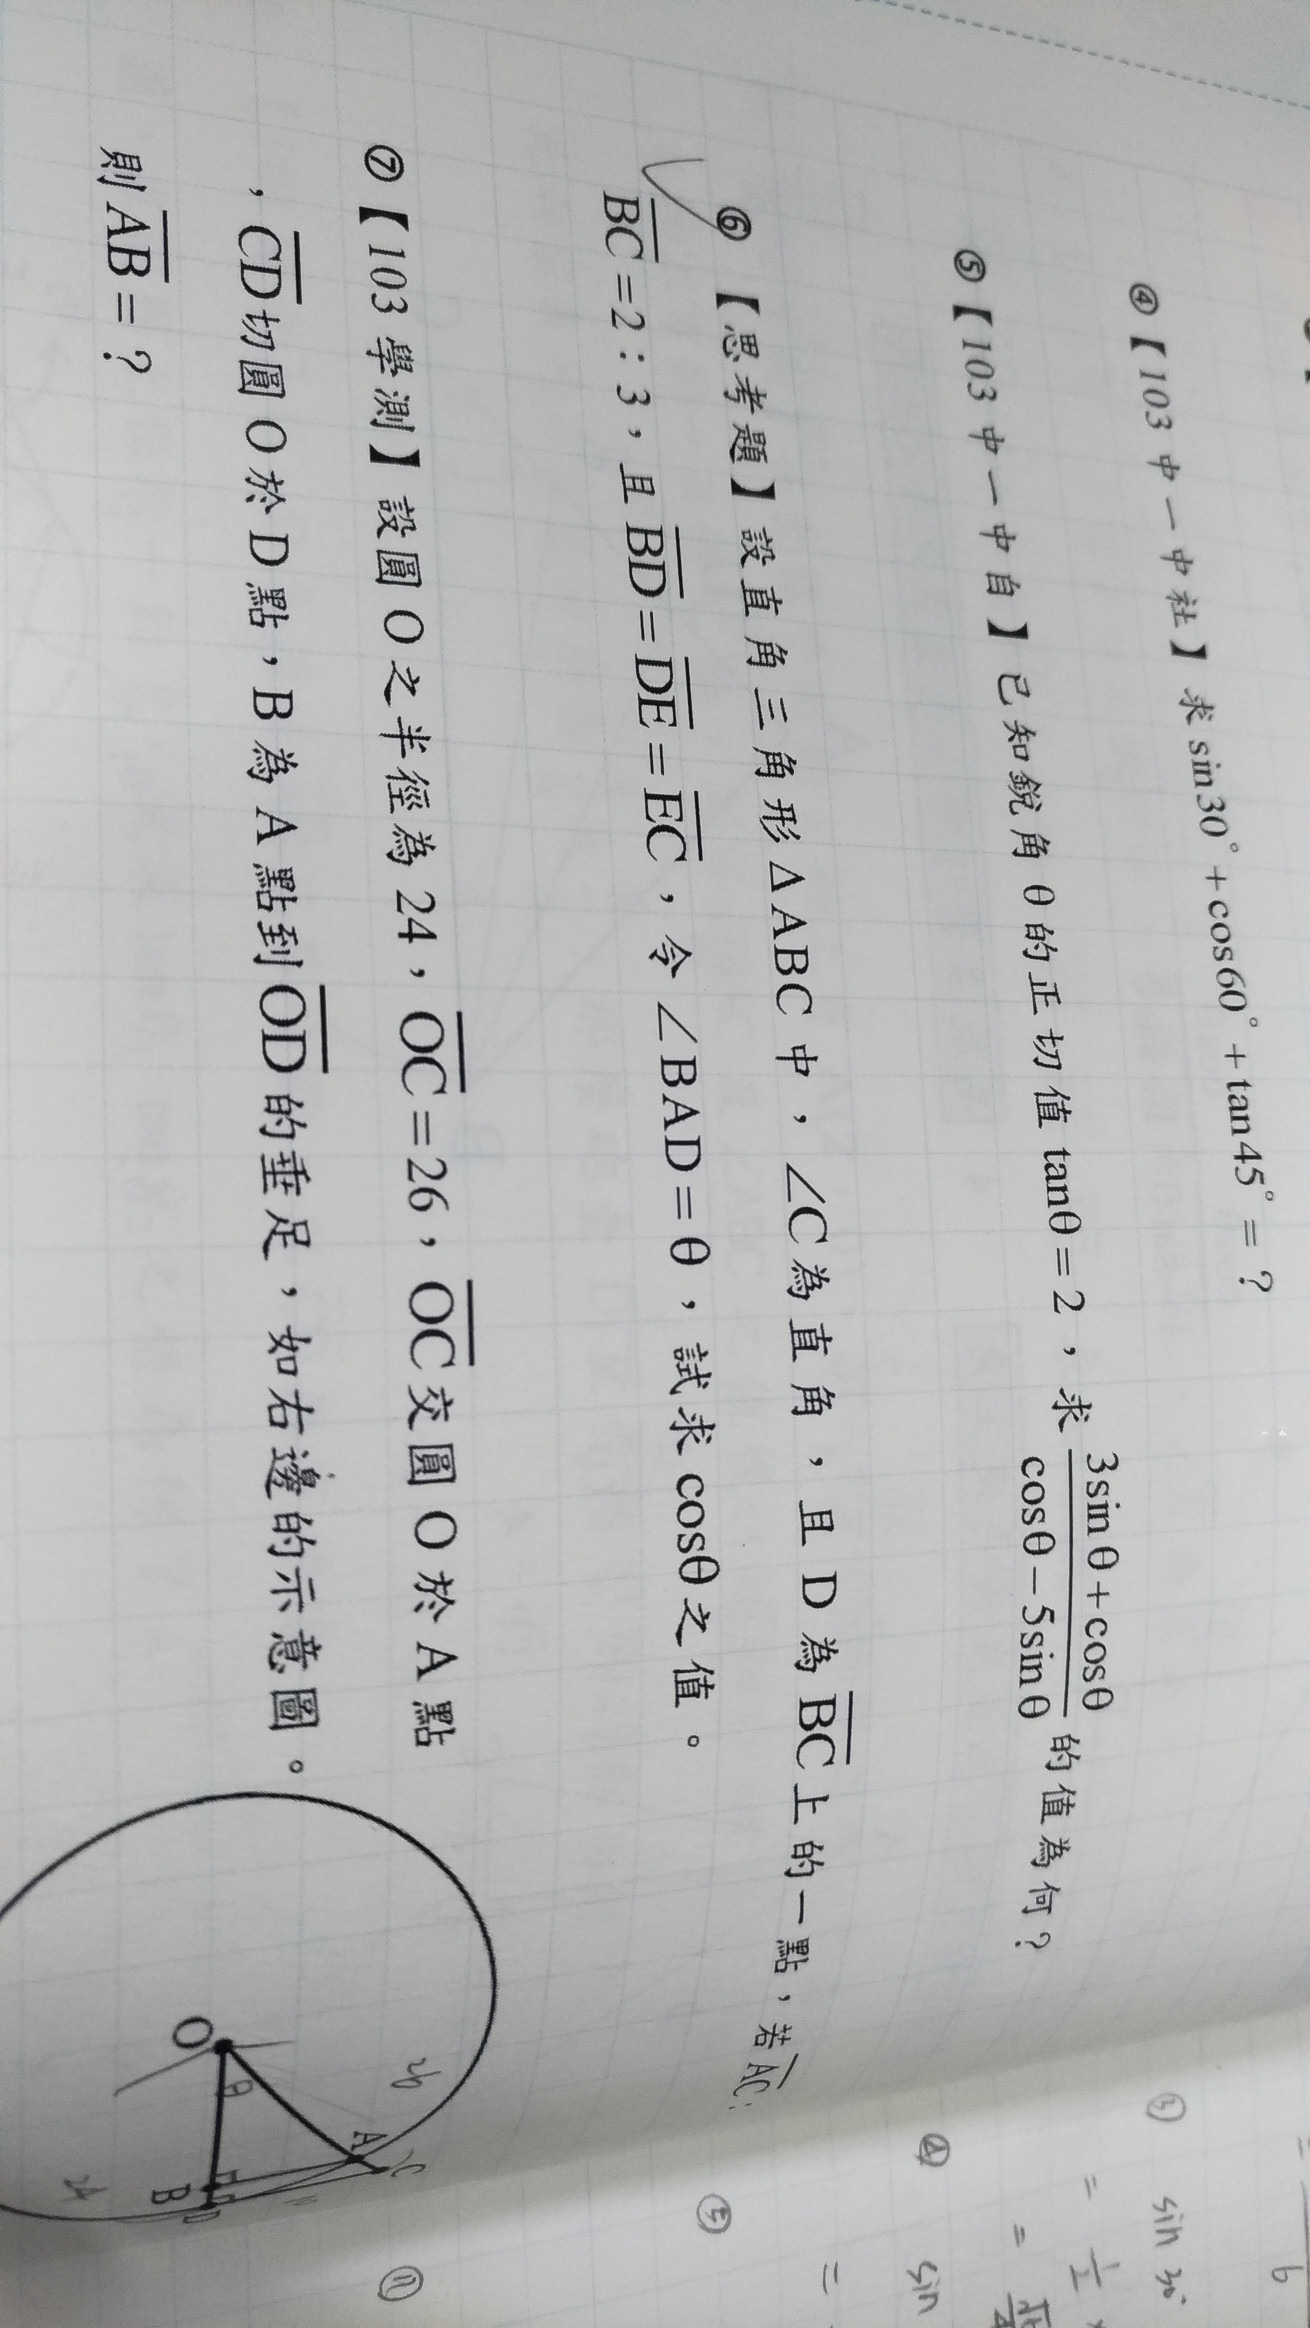 ④【103 中一中社】求 sin30°+cos60°+tan45°=?
⑤【103 中一中自】已知銳角 θ 的正切值 tanθ=2,求 3sinθ+cosθ / cosθ−5sinθ 的值為何?
⑥【思考題】設直角三角形 ΔABC 中,∠C 為直角,且 D 為 BC 上的一點,若 AC:
BC=2:3,且 BD=DE=EC,令∠BAD=θ,試求 cosθ 之值。
⑦【103 學測】設圓 O 之半徑為 24,OC=26,OC 交圓 O 於 A 點
,CD 切圓 O 於 D 點,B 為 A 點到 OD 的垂足,如右邊的示意圖。
則 AB=?
26
A
C
O
θ
B
D
24
6
③ sin 30°
= 1/2 ×
=
④ sin
⑤ =
⑪